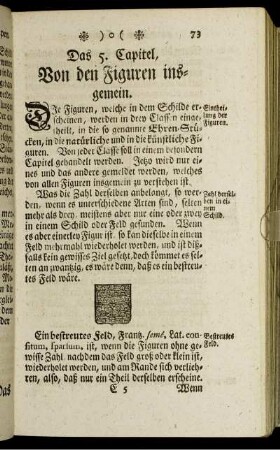 ❋ ) o ( ❋ 73
Das 5. Capitel,
Von den Figuren ins-
gemein.
Die Figuren, welche in dem Schilde er-
scheinen, werden in drey Classen einge-
theilt, in die so genannte Ehren-Stü-
cken, in die natürliche und in die künstliche Fi-
guren. Von jeder Classe soll in einem besondern
Capitel gehandelt werden. Jetzo wird nur ei-
nes und das andere gemeldet werden, welches
von allen Figuren insgemein zu verstehen ist.
Eintheilung der Figuren.
Was die Zahl derselben anbelangt, so wer-
den, wenn es unterschiedene Arten sind, selten
mehr als drey, meistens aber nur eine oder zwey
in einem Schild oder Feld gefunden. Wenn
es aber einerley Figur ist, so kan dieselbe in einem
Feld mehrmahl wiederholet werden, und ist diß-
falls kein gewisses Ziel gesetzt, doch kommet es sel-
ten an zwantzig, es wäre denn, daß es ein bestreu-
tes Feld wäre.
Zahl derselben in einem Schild.
Ein bestreutes Feld, Frantz. semé, Lat. con-
situm, sparsum, ist, wenn die Figuren ohne ge-
wisse Zahl, nachdem das Feld groß oder klein ist,
wiederholet werden, und am Rande sich verlieh-
ren, also, daß nur ein Theil derselben erscheine.
Bestreutes Feld.
E 5 Wenn